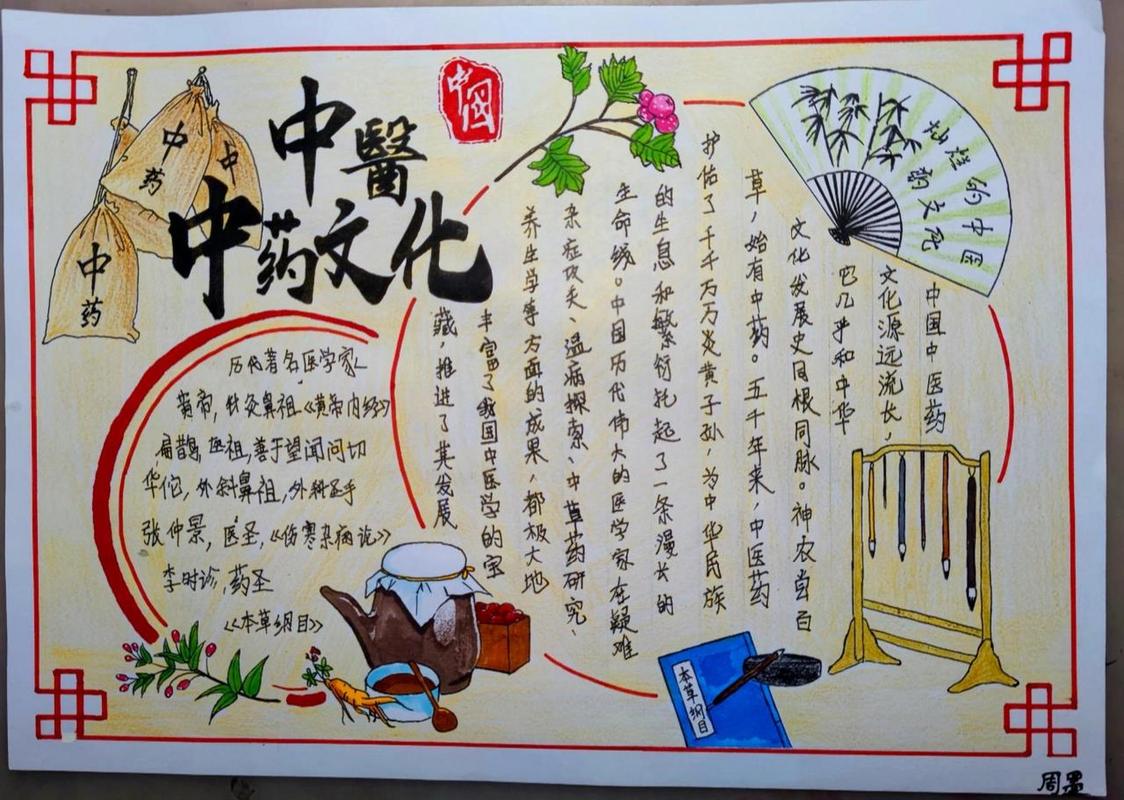 中药
中药
中药
中醫
中药文化
中国
灿烂的中医
药文化
中国中医药
文化源远流长，
它几乎和中华
文化发展史同根同脉。神农尝百
草，始有中药。五千年来，中医药
护佑了千千万万炎黄子孙，为中华民族
的生息和繁衍托起了一条漫长的
生命线。中国历代伟大的医学家在疑难
杂症攻关、温病探索、中草药研究、
养生学等方面的成果，都极大地
丰富了我国中医学的宝
藏，推进了其发展
历代著名医学家
黄帝，针灸鼻祖《黄帝内经》
扁鹊，医祖，善于望闻问切
华佗，外科鼻祖，外科圣手
张仲景，医圣，《伤寒杂病论》
李时珍，药圣
《本草纲目》
本草纲目
周墨